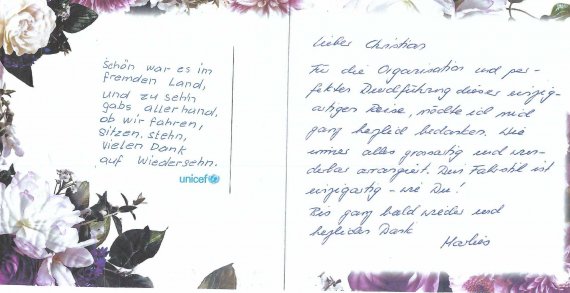 Schön war es im
fremden Land,
und zu sehn
gabs allerhand,
ob wir fahren,
sitzen, stehn,
vielen Dank
auf Wiedersehn.
unicef
Lieber Christian
Für die Organisation und per-
fekten Durchführung dieser einzig-
artigen Reise, möchte ich mich
ganz herzlich bedanken. Wie
immer alles grossartig und wun-
derbar arrangiert. Dein Fahrstil ist
einzigartig - wie Du!
Bis ganz bald wieder und
herzlichen Dank
Marlies